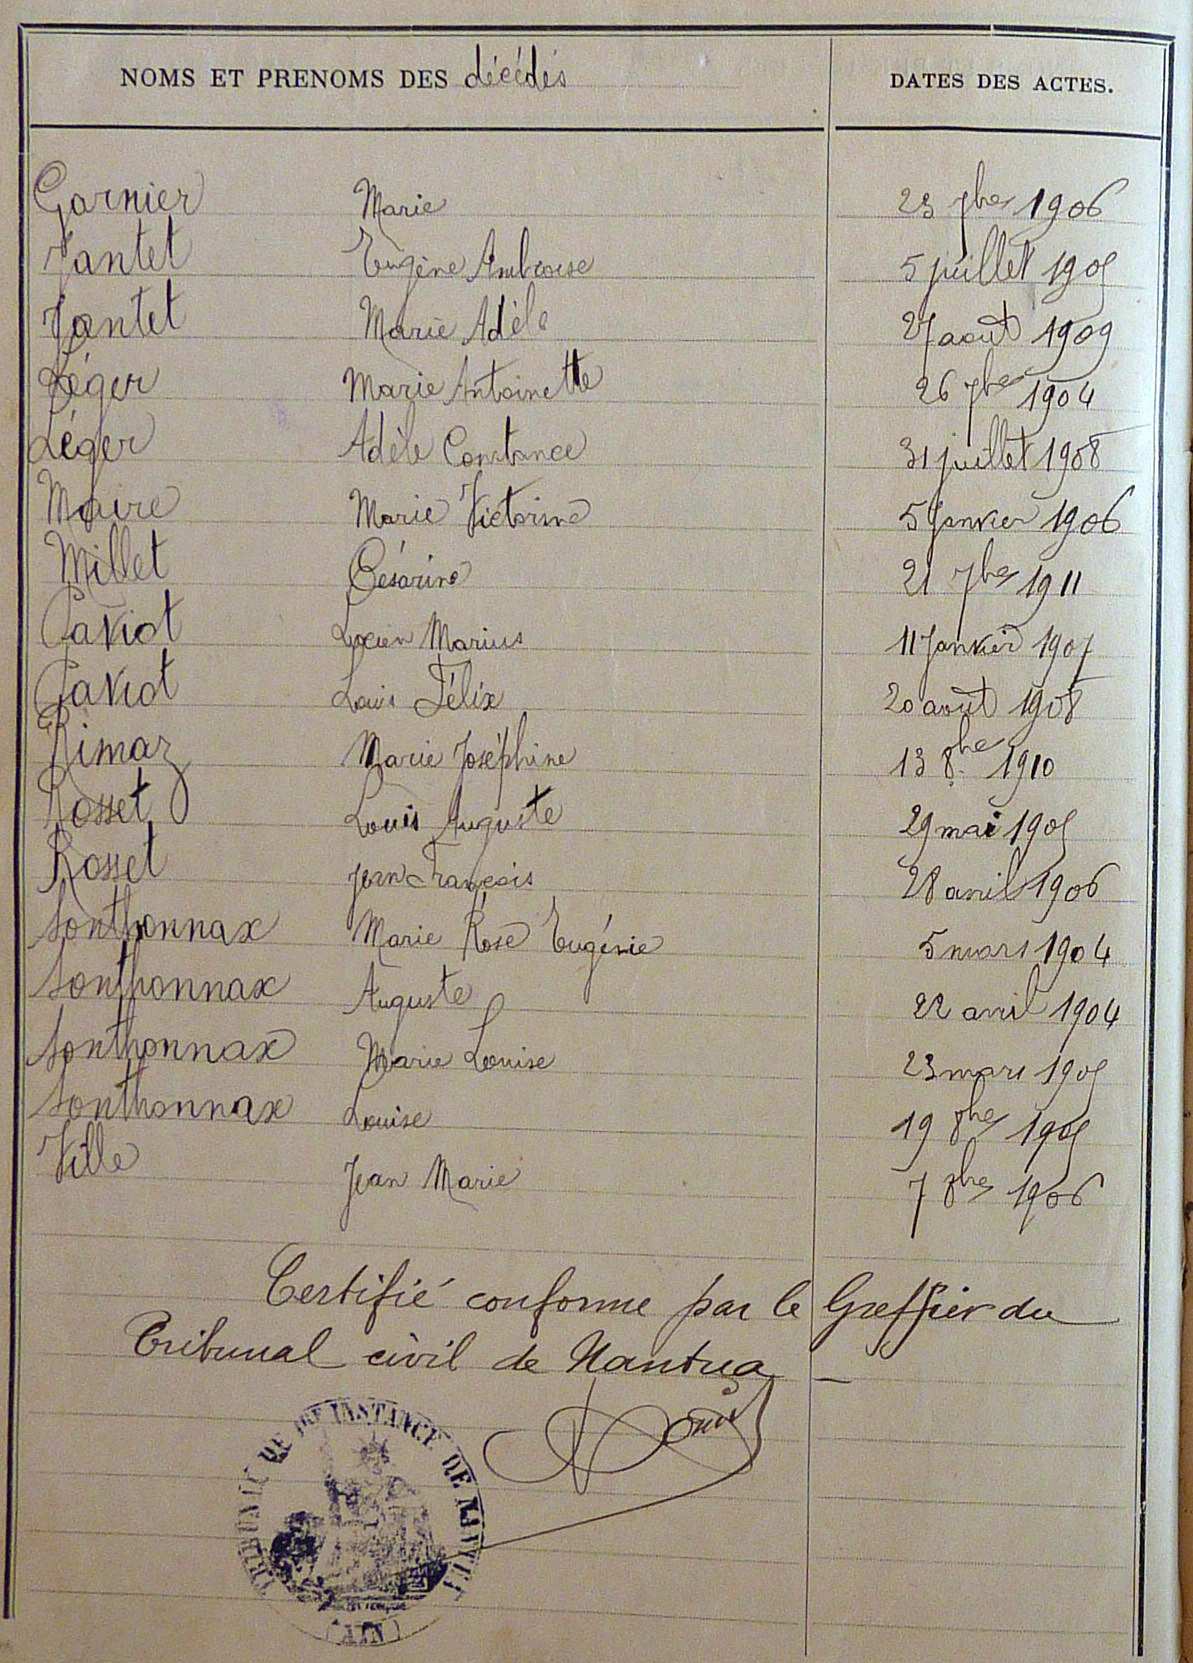 NOMS ET PRENOMS DES décédés DATES DES ACTES.
Garnier Marie 23 7bre 1906
Jantet Eugène Ambroise 5 juillet 1905
Jantet Marie Adèle 27 août 1909
Léger Marie Antoinette 26 7bre 1904
Léger Adèle Constance 31 juillet 1908
Maire Marie Victorine 5 Janvier 1906
Millet Césarine 21 7bre 1911
Paviot Lucien Marius 11 Janvier 1907
Paviot Louis Félix 20 août 1908
Rimaz Marie Joséphine 13 8bre 1910
Rosset Louis Auguste 29 mai 1905
Rosset Jean François 28 avril 1906
Sonthonnax Marie Rose Eugénie 5 mars 1904
Sonthonnax Auguste 22 avril 1904
Sonthonnax Marie Louise 23 mars 1905
Sonthonnax Louise 19 8bre 1905
Ville Jean Marie 7 8bre 1906
Certifié conforme par le Greffier du
Tribunal civil de Nantua
TRIBUNAL DE 1RE INSTANCE DE NANTUA
(AIN)